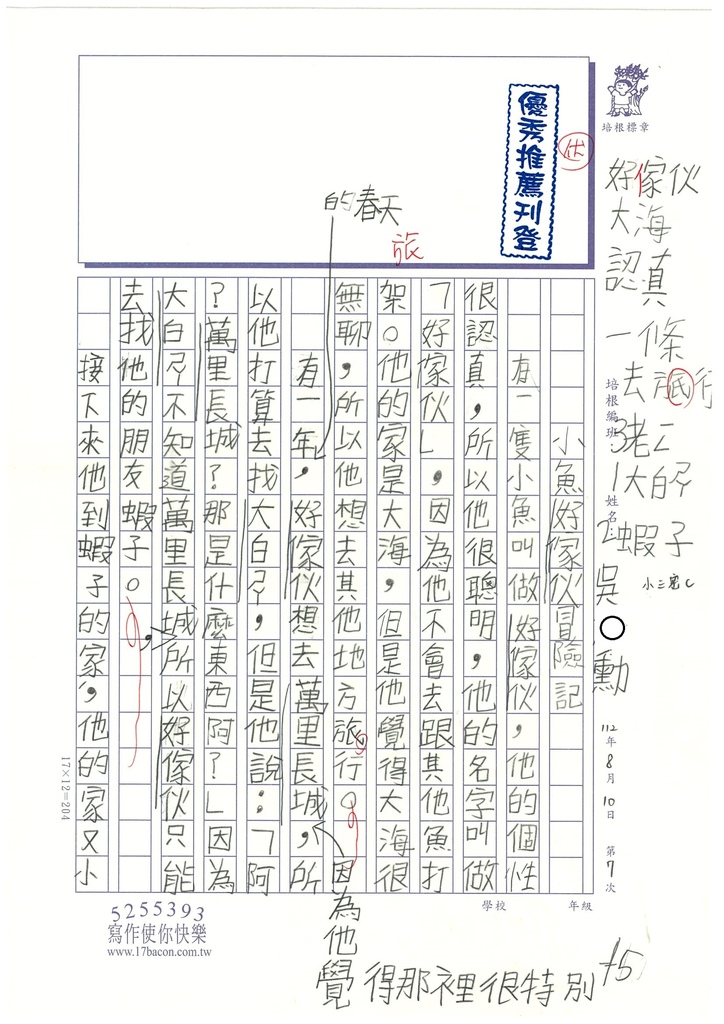 優秀推薦刊登
伙
培根標章
好傢伙
大海
認真
一條
去旅行
3老二
1大白ㄕㄚ
2蝦子
小三宽C
培根編班：
姓名：
吳○勳
112年8月10日 第7次
的春天
旅
小魚好傢伙冒險記
有一隻小魚叫做好傢伙，他的個性
很認真，所以他很聰明，他的名字叫做
「好傢伙」，因為他不會去跟其他魚打
架。他的家是大海，但是他覺得大海很
無聊，所以他想去其他地方旅行。
有一年，好傢伙想去萬里長城，所
以他打算去找大白ㄕㄚ，但是他說：「阿
？萬里長城？那是什麼東西阿？」因為
大白ㄕㄚ不知道萬里長城，所以好傢伙只能
去找他的朋友蝦子。
接下來他到蝦子的家，他的家又小
因為他覺得那裡很特別
+5
17×12=204
學校
年級
5255393
寫作使你快樂
www.17bacon.com.tw